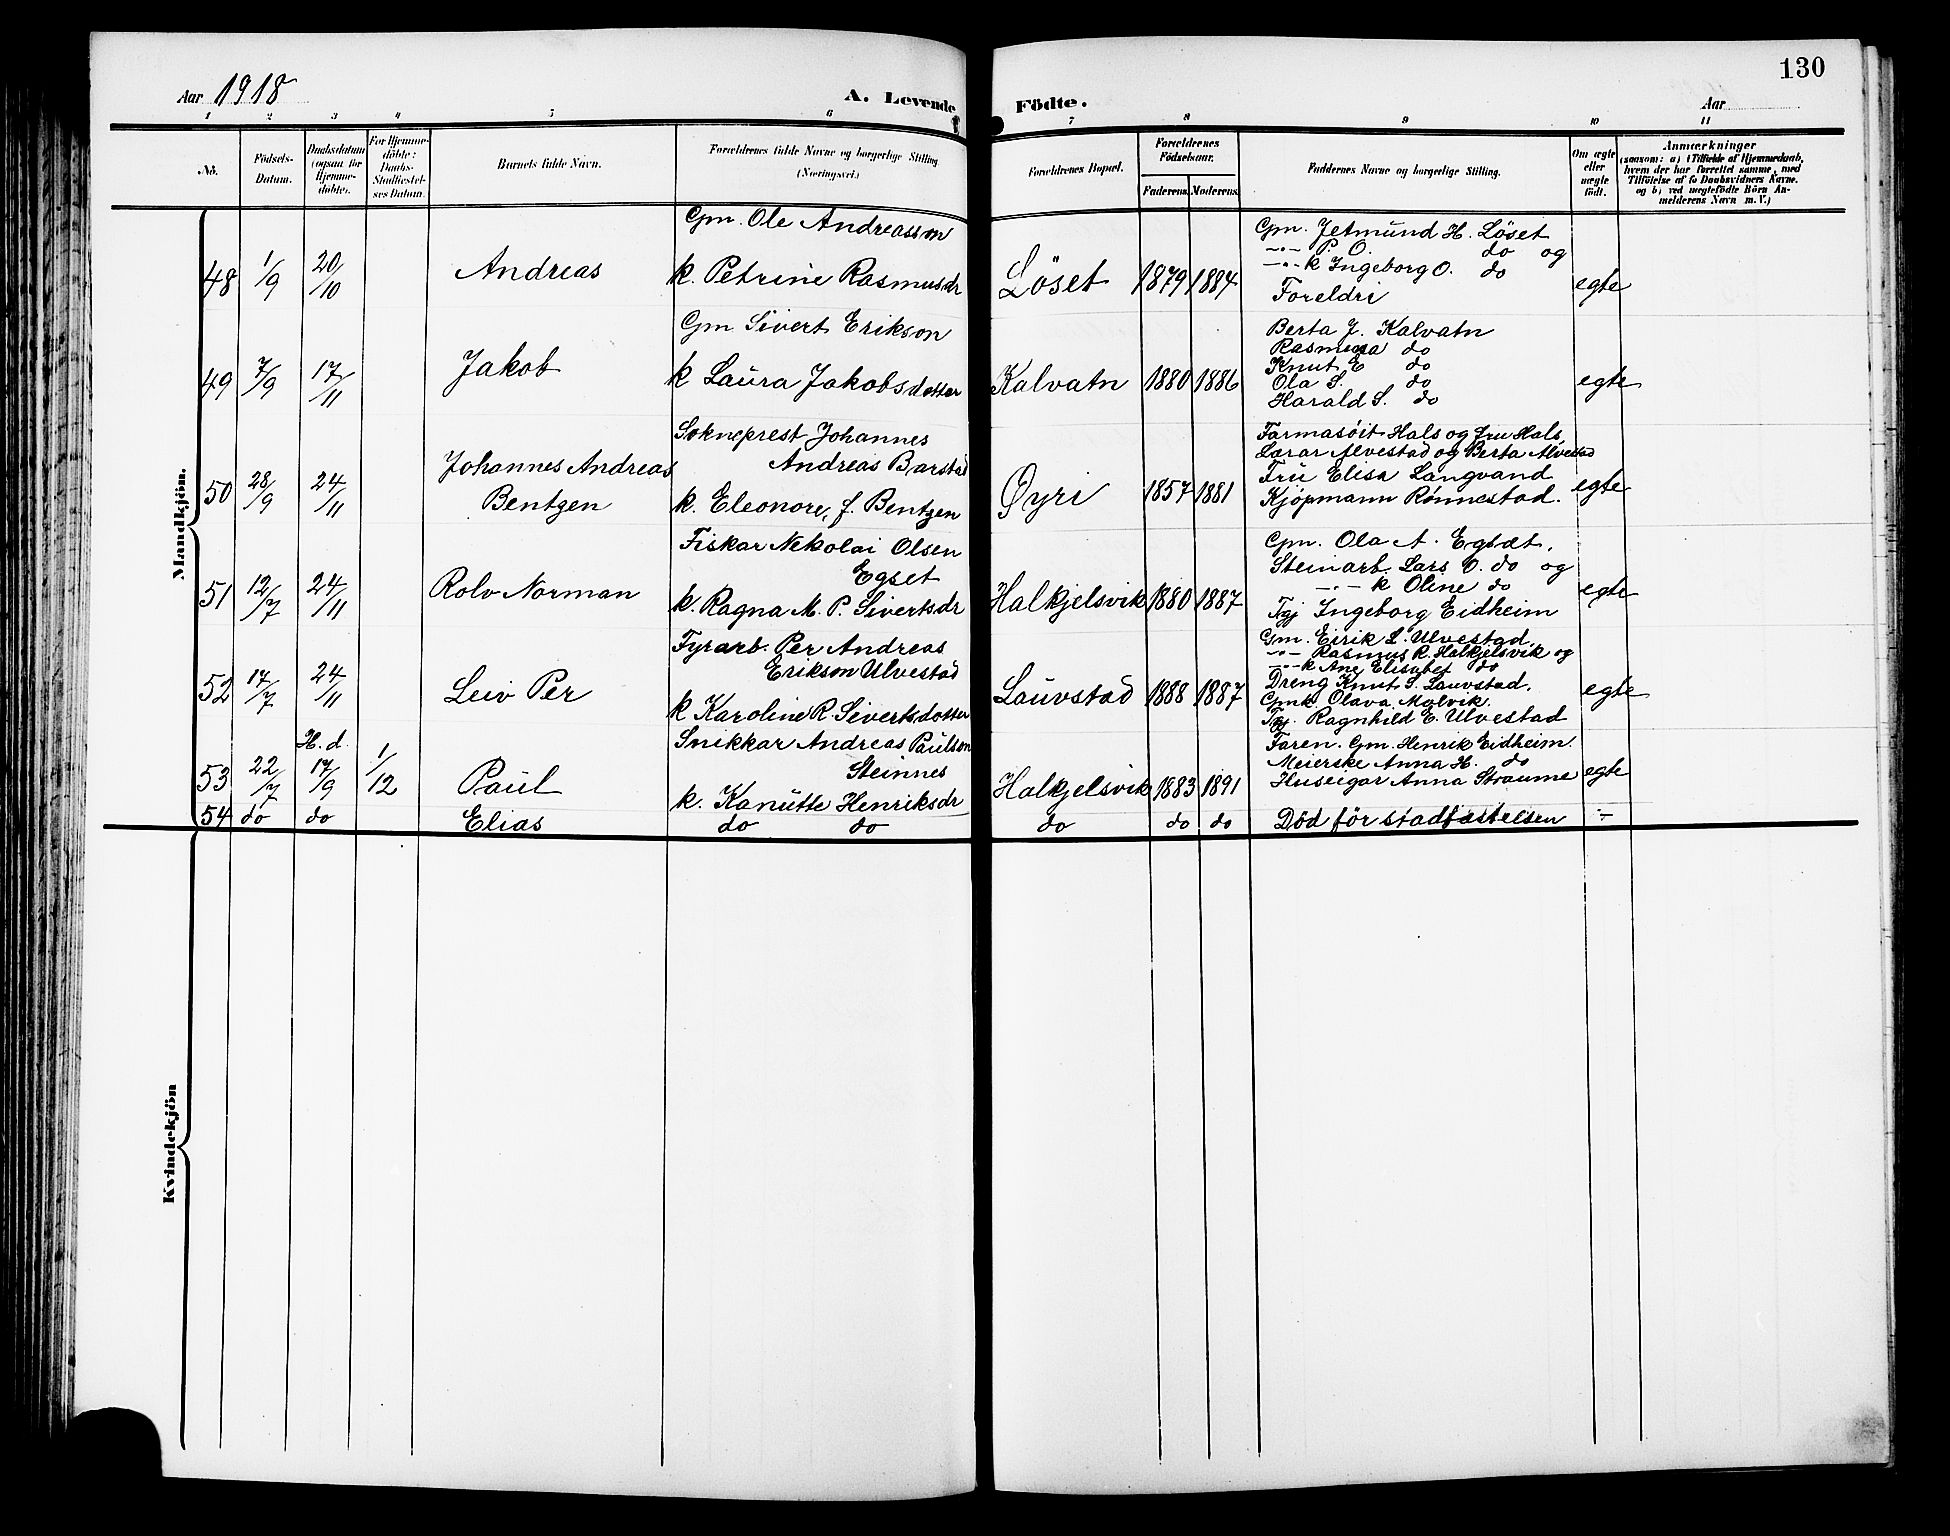 130
Aar 1918
A. Levende Födte.
Aar
1 2 3 4 5 6 7 8 9 10 11
No.
Födsels-Datum.
Daabsdatum (ogsaa for Hjemme-döbte).
For Hjemme-döbte: Daabs-Stadfæstel-ses Datum.
Barnets fulde Navn.
Forældrenes fulde Navne og borgerlige Stilling (Næringsvei.)
Forældrenes Bopæl.
Forældrenes Födselsaar.
Faderens. Moderens.
Faddernes Navne og borgerlige Stilling.
Om ægte eller uægte födt.
Anmærkninger
(saasom: a) i Tilfælde af Hjemmedaab, hvem der har forrettet samme, med Tilföielse af to Daabsvidners Navne. og b) ved uægtefödte Börn An-melderens Navn m. V.)
Mandkjön.
48 1/9 20/10 Andreas
Gm. Ole Andreasson
k. Petrine Rasmusdr
Löset 1879 1884
Gm. Jetmund H. Löset
—"— P. O. do og
—"— k Ingeborg O. do
Foreldri
egte
49 7/9 17/11 Jakob
Gm Sivert Erikson
k Laura Jakobsdotter
Kalvatn 1880 1886
Berta J. Kalvatn
Rasmina do
Knut E do
Ola S. do
Harald S. do
egte
50 28/9 24/11 Johannes Andreas
Bentzen
Sokneprest Johannes
Andreas Barstad
k. Eleonore, f. Bentzen
Øyri 1857 1881
Farmasöit Hals og fru Hals,
Lærar Alvestad og Berta Alvestad
Fru Elisa Langvand
Kjöpmann Rönnestad.
egte
51 12/7 24/11 Rolv Norman
Fiskar Nekolai Olsen
Egset
k. Ragna M. P. Sivertsdr
Halkjelsvik 1880 1887
Gm. Ola A. Egset,
Steinarb. Lars O. do og
—"— k Oline do
Tgj Ingeborg Eidheim
egte
52 17/7 24/11 Leiv Per
Fyrarb. Per Andreas
Erikson Ulvestad
k Karoline R. Sivertsdotter
Lauvstad 1888 1887
Gm. Eirik L. Ulvestad
—"— Rasmus R. Halkjelsvik og
—"— k Ane Elisabet do
Dreng Knut S. Lauvstad,
Gmk. Olava Molvik.
Tgj. Ragnhild E. Ulvestad
egte
53 22/7 H. d. 17/9 1/12 Paul
Snikkar Andreas Paulson
Steinnes
k. Kanutte Henriksdr
Halkjelsvik 1883 1891
Faren. Gm. Henrik Eidheim.
Meierske Anna H. do
Huseigar Anna Straume
egte
54 do do Elias
do do
do do do
Död för stadfæstelsen
—"—
Kvindekjön